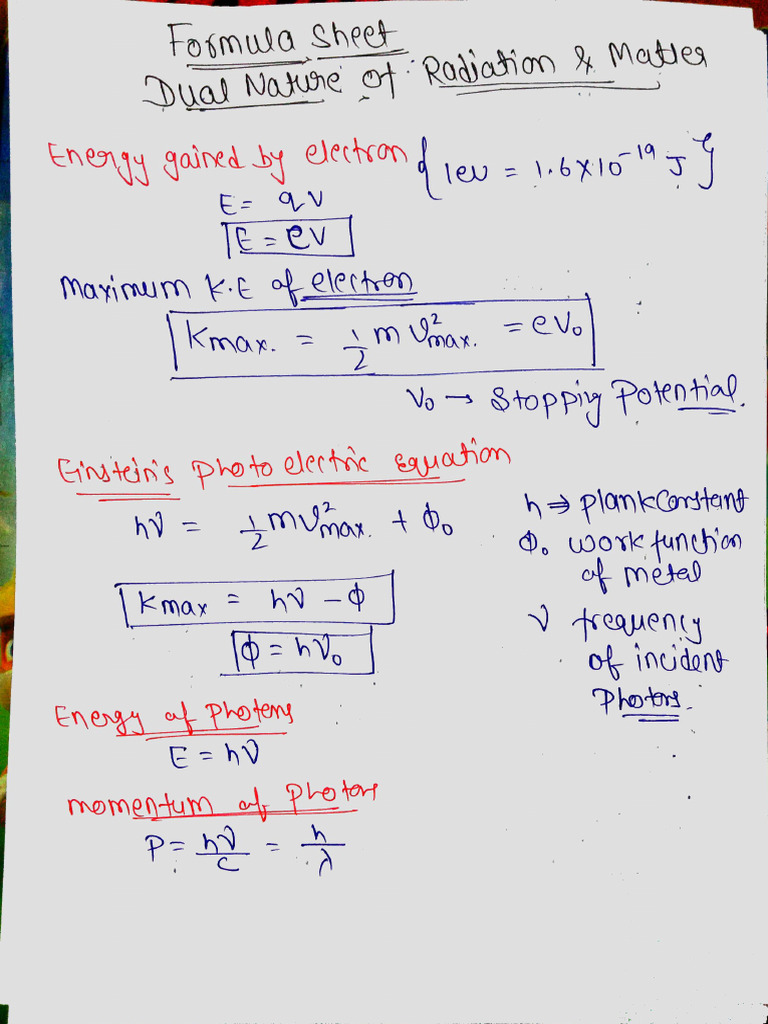 Formula Sheet
Dual Nature of Radiation & Matter
Energy gained by electron {1ev = 1.6×10⁻¹⁹ J}
E = qV
E = eV
Maximum K.E of electron
Kmax. = 1/2 m v²max. = eV₀
V₀ → Stopping Potential.
Einstein's Photo electric Equation
hν = 1/2 mv²max. + ϕ₀
h ⇒ plank Constant
ϕ₀ work function
of metal
Kmax = hν − ϕ
ν frequency
ϕ = hν₀
of incident
Photons.
Energy of Photons
E = hν
momentum of Photon
P = hν/c = h/λ